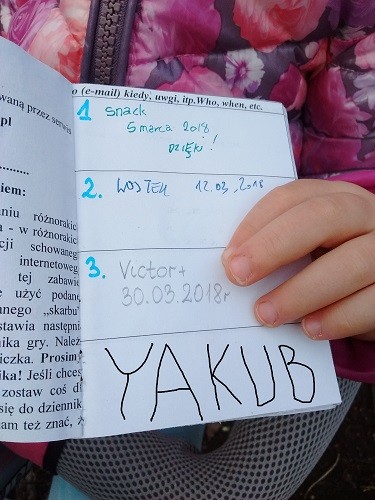 o (e-mail) kiedy, uwgi, itp.Who, when, etc.
1 snack
5 marca 2018
DZIĘKI!
2. WOSTEK 12.03.2018
3. Victor+
30.03.2018r
YAKUB
waną przez serwis
pl
..........
iem:
aniu różnorakic
a - w różnorakic
cji schowaneg
internetoweg
tej zabawie
e użyć podane
unego „skarbu”
stawia następni
nika gry. Należ
iczka. Prosim
ika! Jeśli chces
zostaw coś d
się do dziennik
am też znać, ż